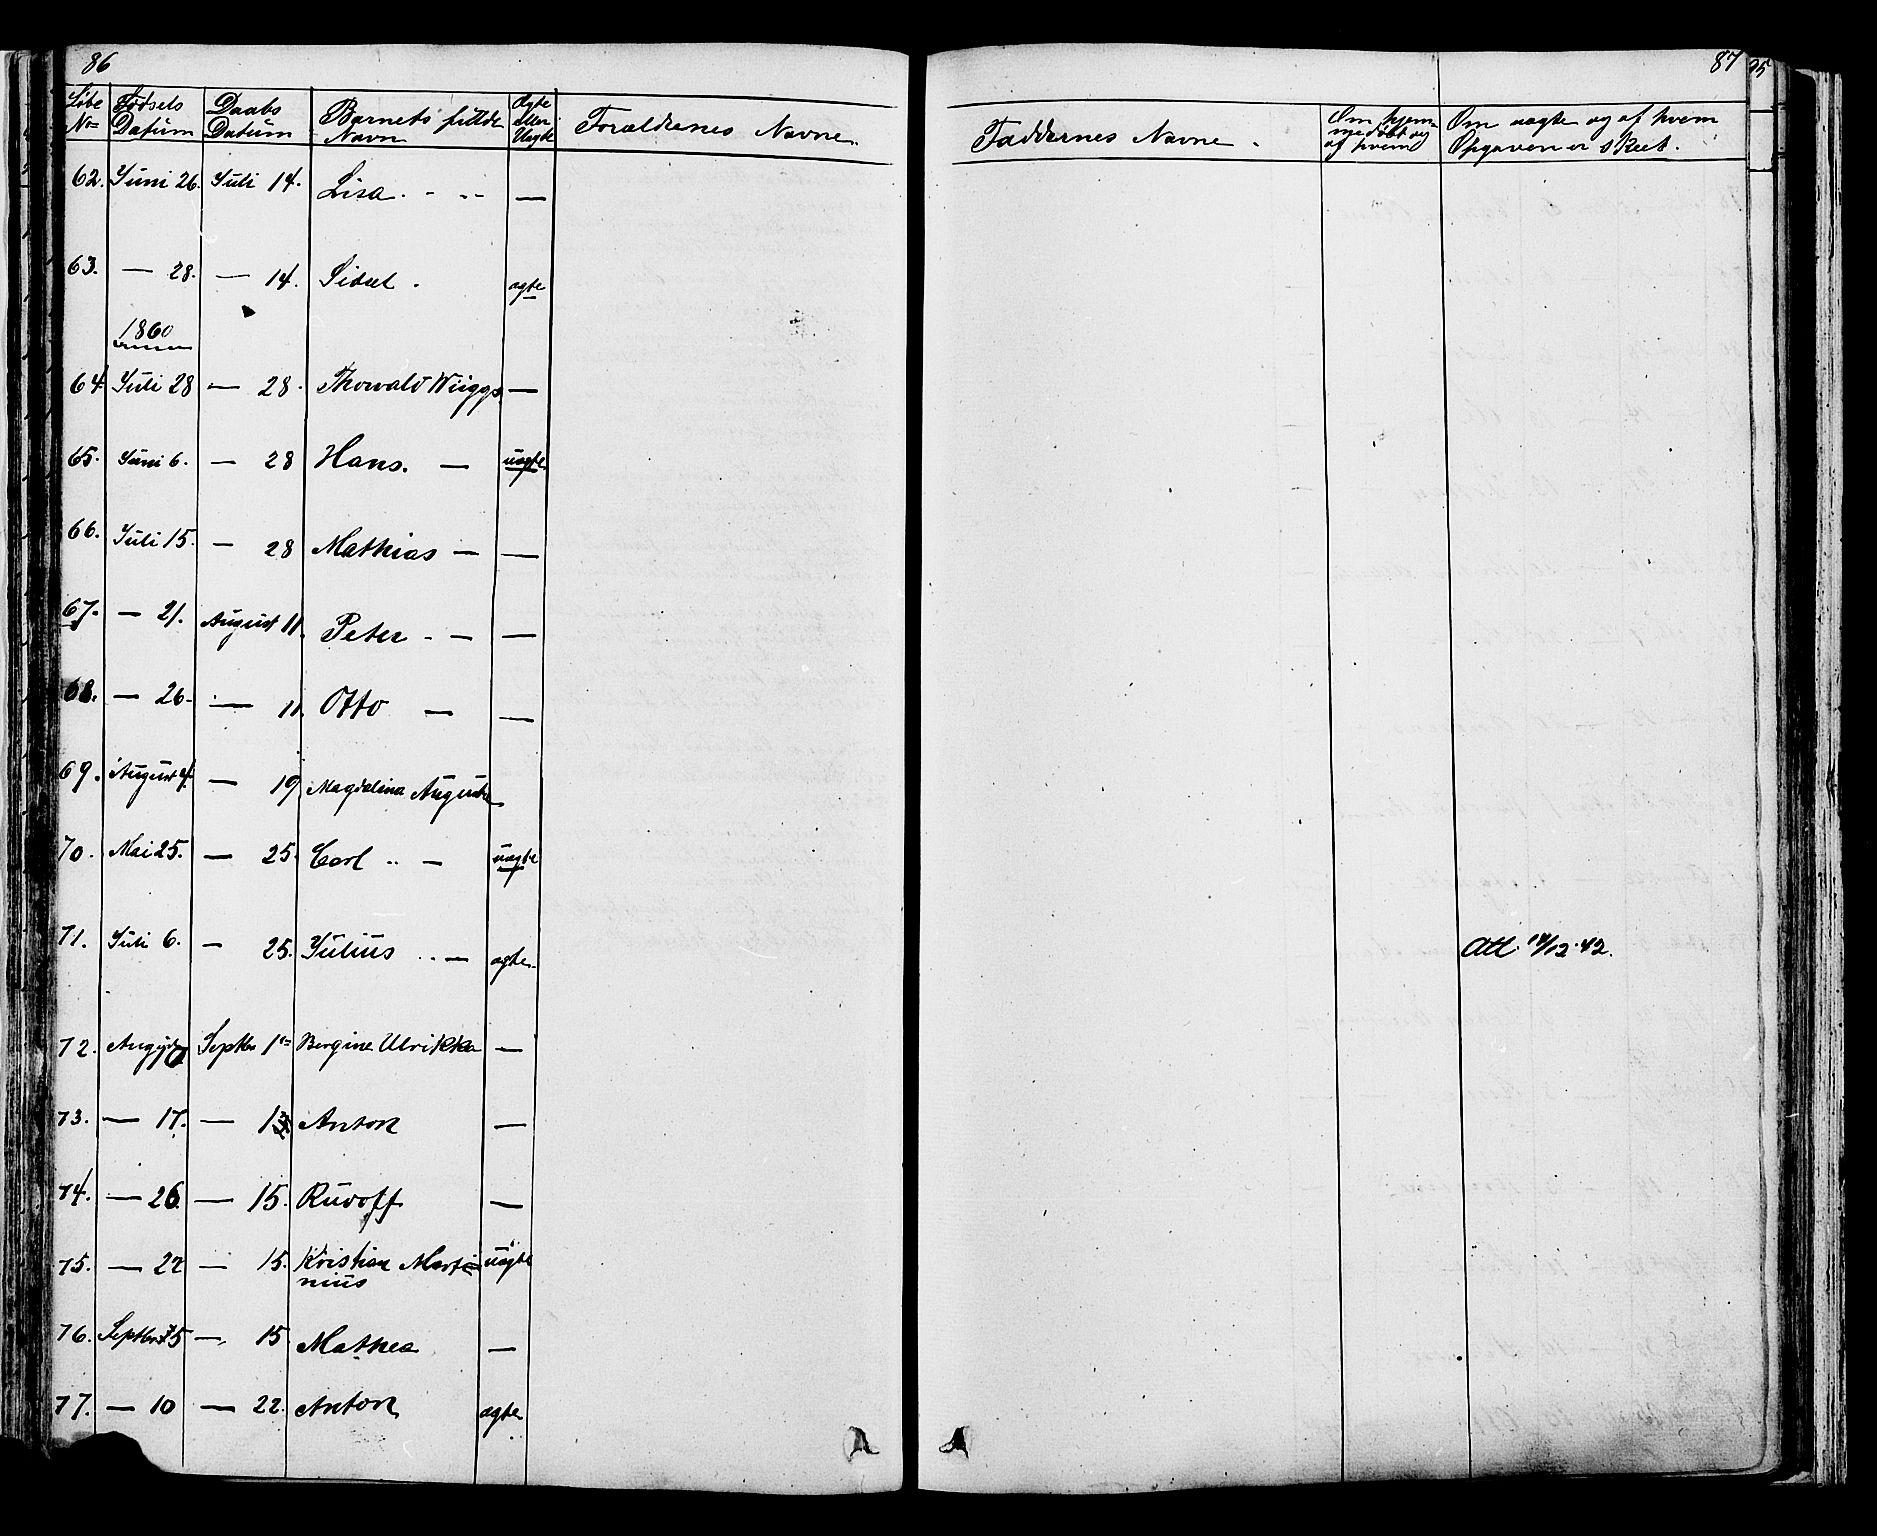 86
Løbe No Fødsels Datum Daabs Datum Barnets fulde Navn Ægte eller Uægte Forældrenes Navne.
62. Juni 26. Juli 14. Lisa. - - - —
63. — 28. — 14. Sidsel. ægte
1860
64. Juli 28 — 28. Thorvald Wiiggo —
65. Juni 6. — 28 Hans. — uægte
66. Juli 15. — 28 Mathias — —
67. — 21. August 11. Peter - — —
68. — 26. — 11. Otto — —
69. August 4. — 19 Magdalina Auguste
70. Mai 25. — 25. Carl - — uægte
71. Juli 6. — 25. Julius - — ægte.
72. August Septbr 1 Bergine Ulrikka —
73. — 17. — 1 Anton —
74. — 26. — 15. Rudolf —
75. — 22 — 15. Kristian Marti- uægte
nius
76. Septbr 5 — 15. Mathea —
77. — 10 — 22. Anton ægte
87
95
Faddernes Navne. Om hjem- medøbt og af hvem Om uægte og af hvem Opgaven er skeet.
Att. 14/12.42.